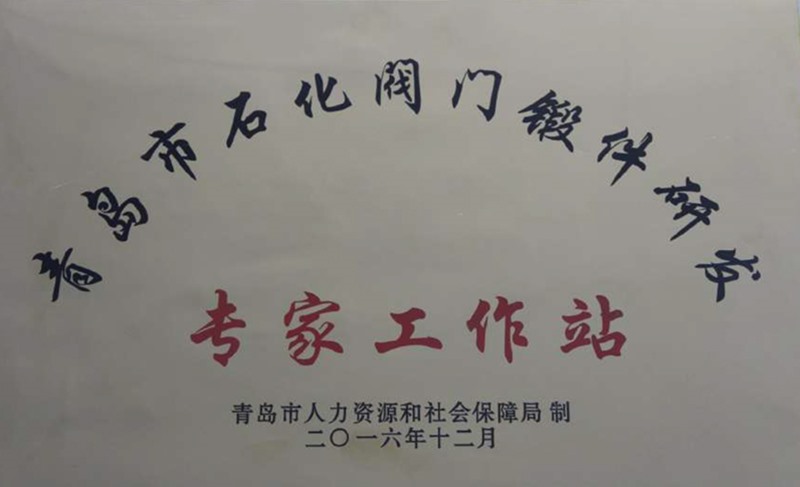 青岛市石化阀门锻件研发
专家工作站
青岛市人力资源和社会保障局 制
二〇一六年十二月